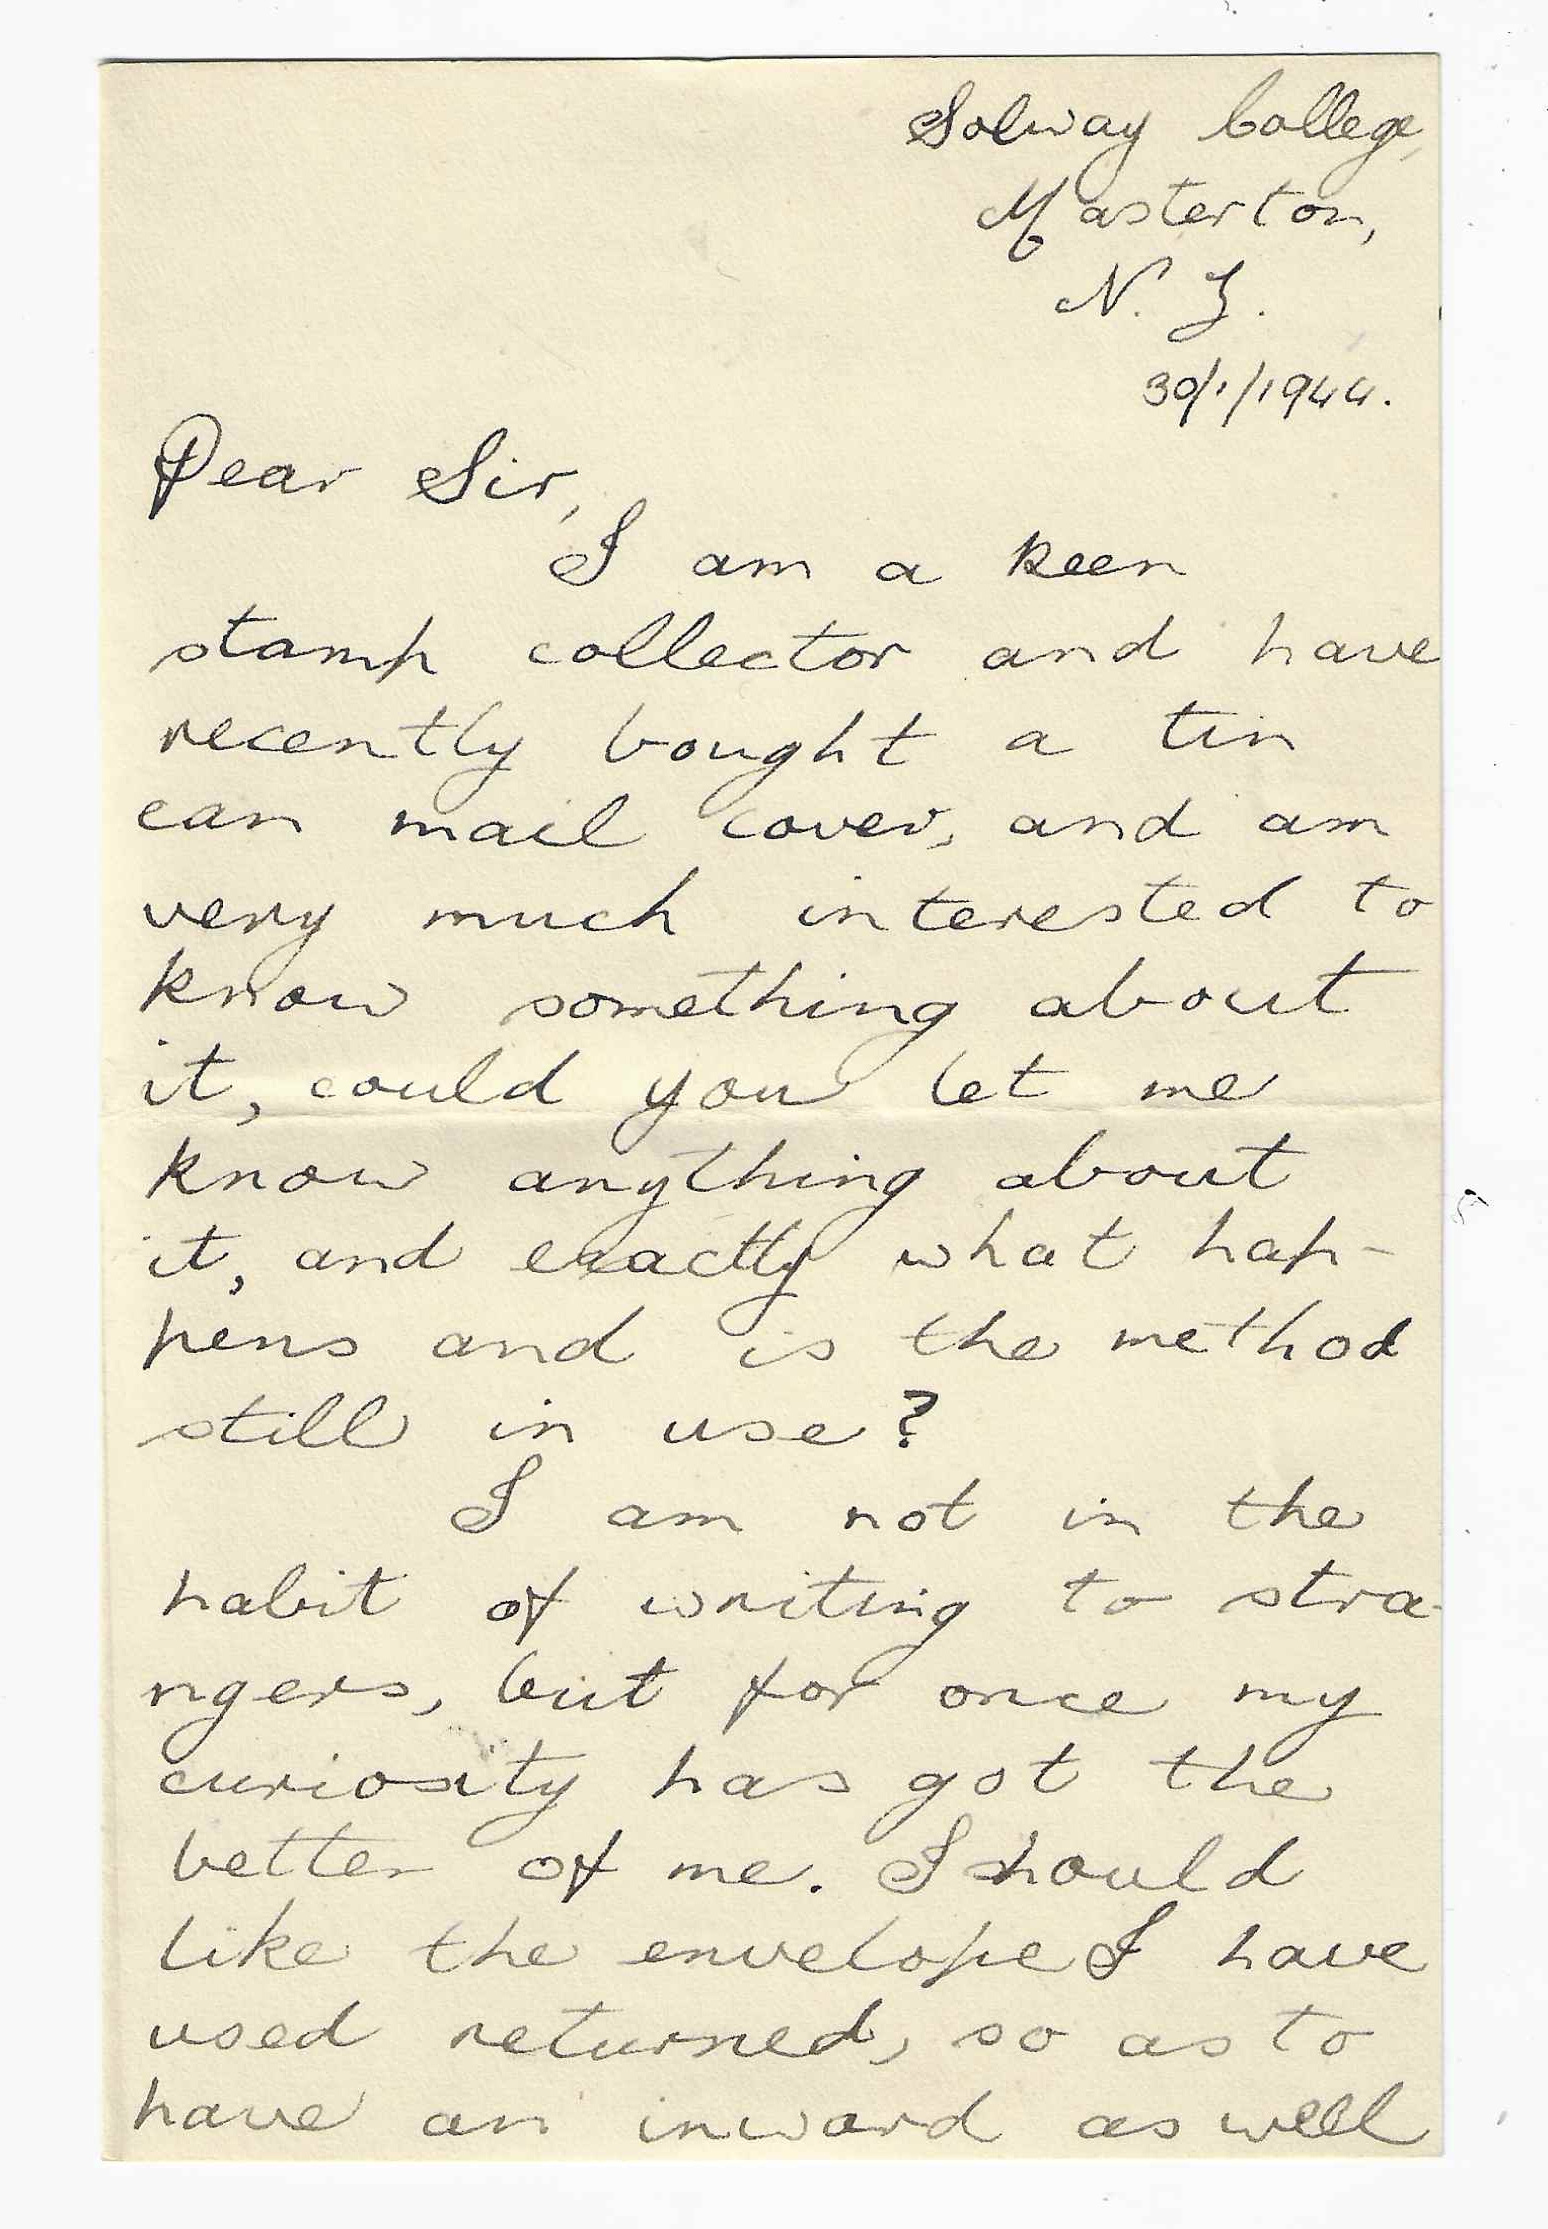 Solway College,
Masterton,
N. Z.
30/1/1944.
Dear Sir,
I am a keen
stamp collector and have
recently bought a tin
can mail cover, and am
very much interested to
know something about
it, could you let me
know anything about
it, and exactly what hap-
pens and is the method
still in use?
I am not in the
habit of writing to stra-
ngers, but for once my
curiosity has got the
better of me. I should
like the envelope I have
used returned, so as to
have an inward as well